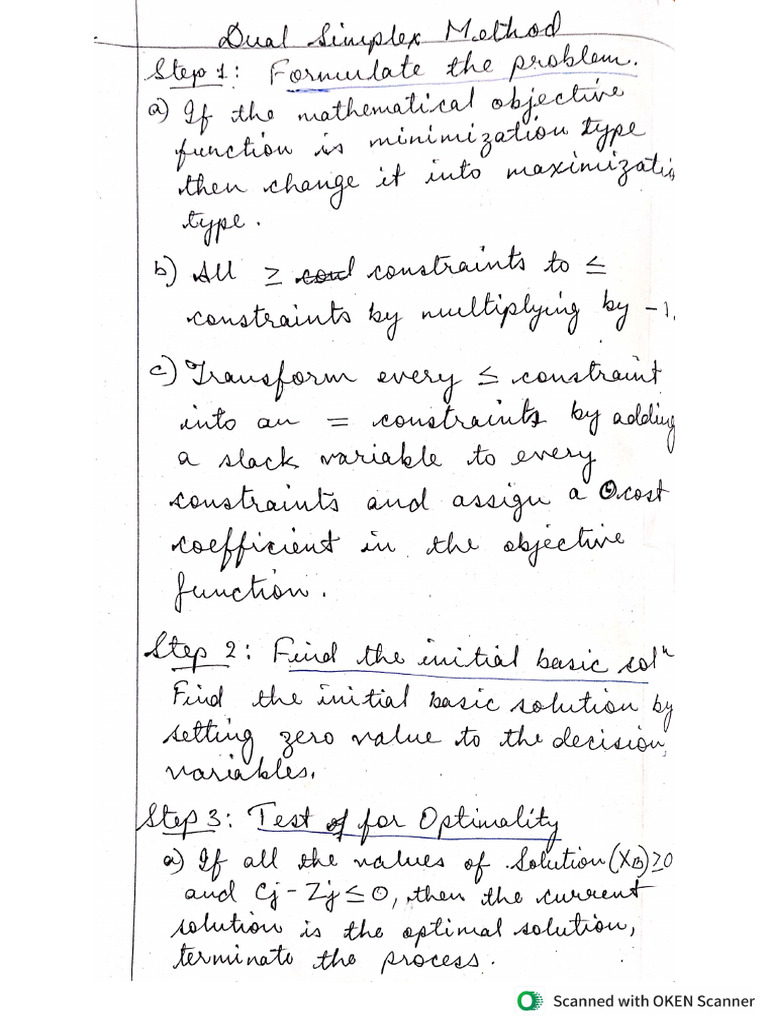 Dual Simplex Method
Step 1: Formulate the problem.
a) If the mathematical objective
function is minimization type
then change it into maximizatio
type.
b) All ≥ constraints to ≤
constraints by multiplying by -1.
c) Transform every ≤ constraint
into an = constraints by adding
a slack variable to every
constraints and assign a 0 cost
coefficient in the objective
function.
Step 2: Find the initial basic solⁿ
Find the initial basic solution by
setting zero value to the decision
variables.
Step 3: Test for Optimality
a) If all the values of solution (XB) ≥ 0
and Cj - Zj ≤ 0, then the current
solution is the optimal solution,
terminate the process.
Scanned with OKEN Scanner